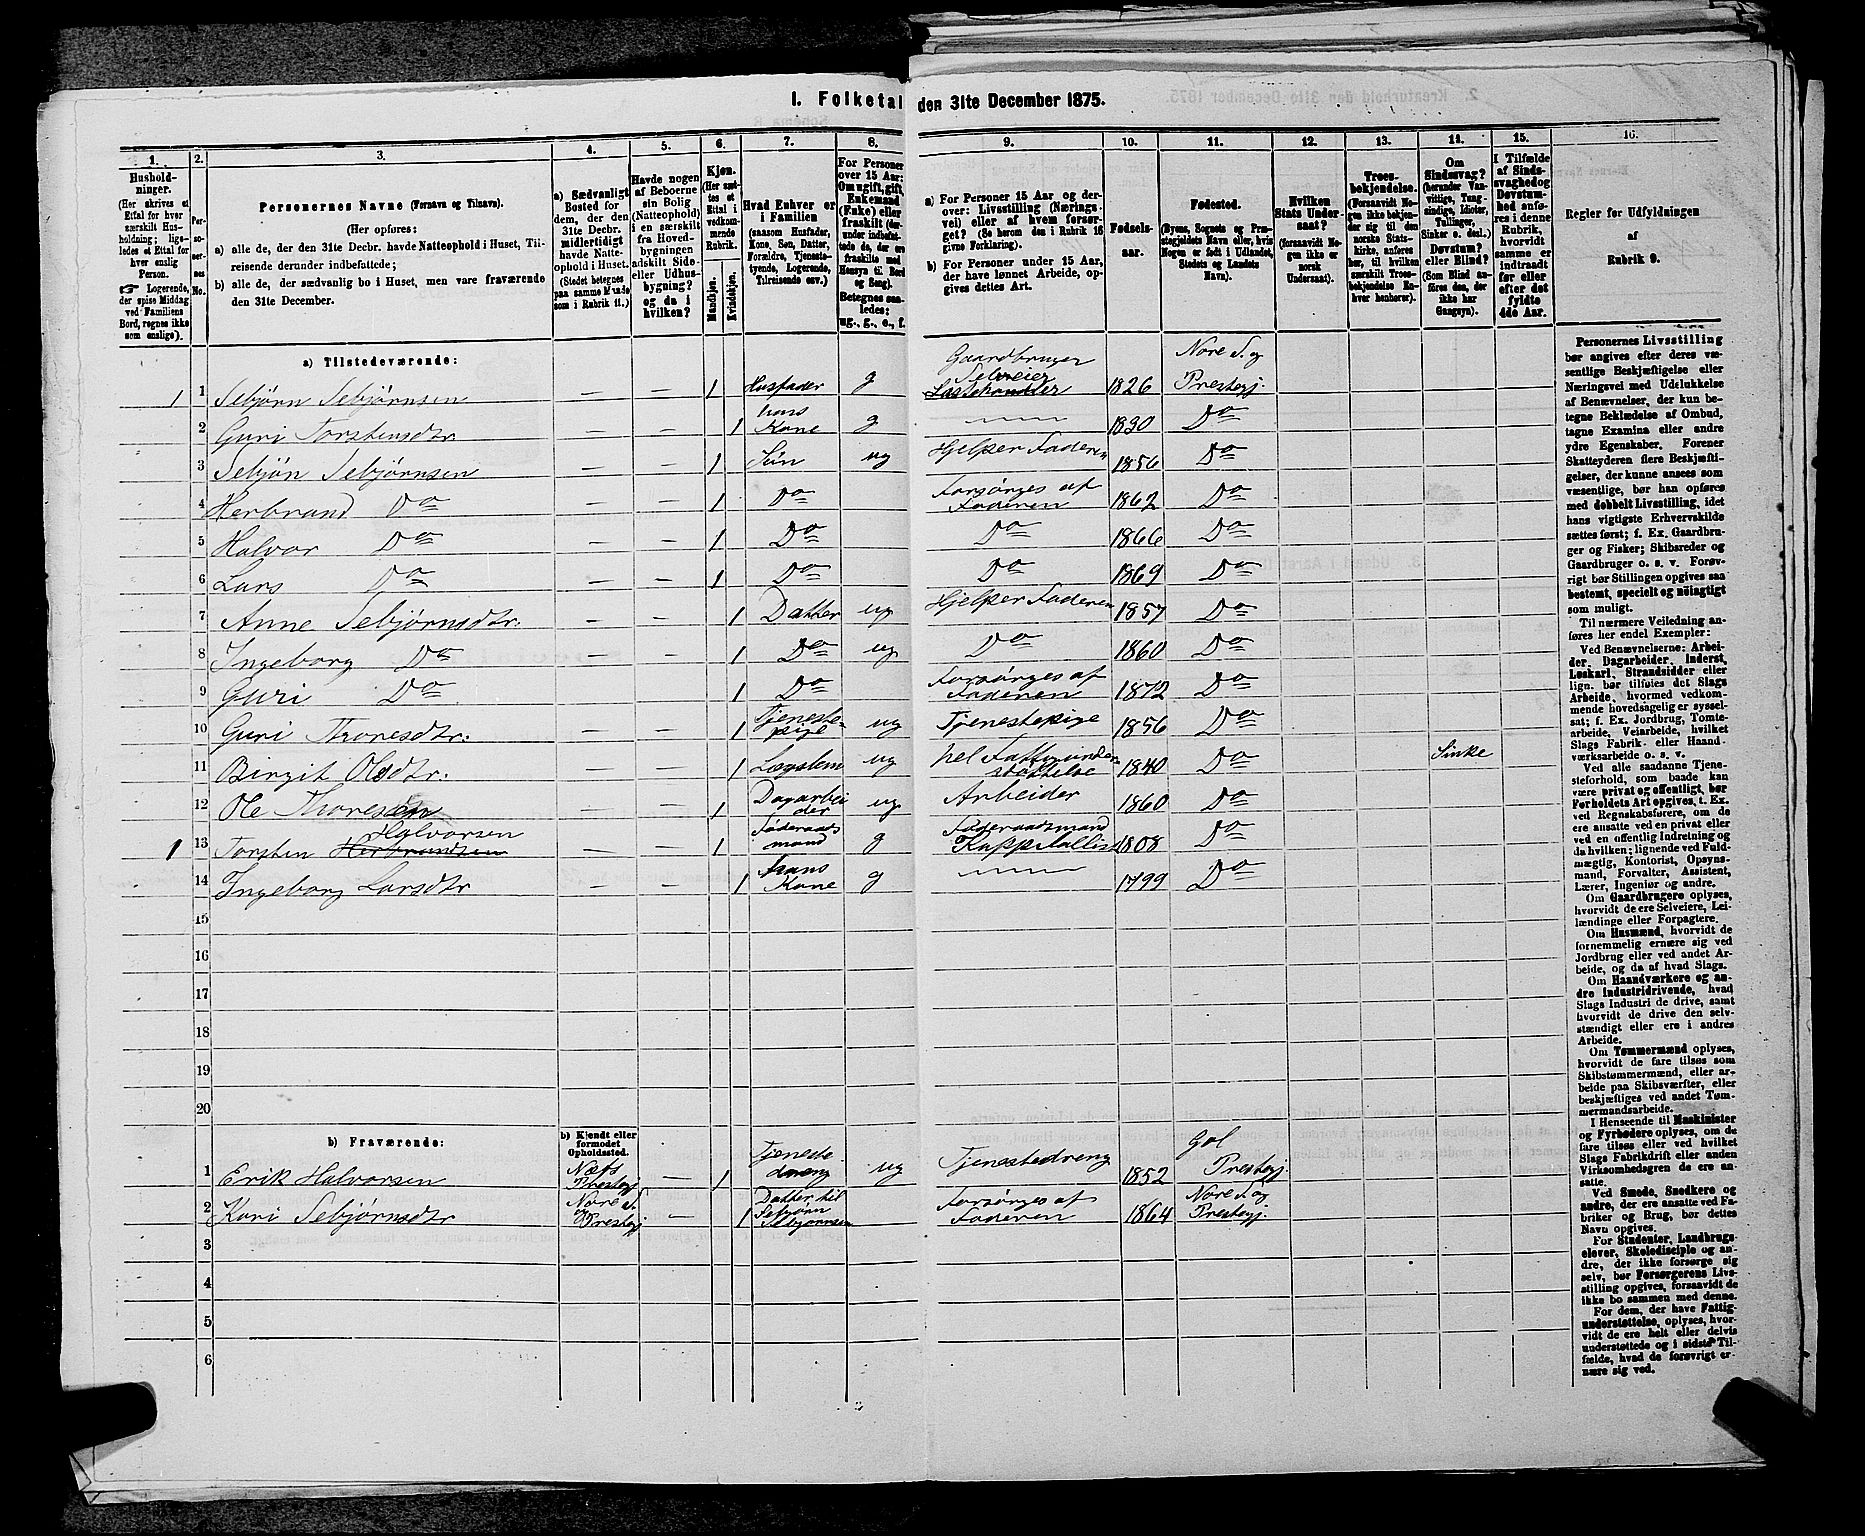 1. Folketal den 31te December 1875.
1. 2. 3. 4. 5. 6. 7. 8. 9. 10. 11. 12. 13. 14. 15. 16.
Hushold-
ninger.
(Her skrives et
Ettal for hver
særskilt Hus-
holdning; lige-
ledes et Ettal for
hver enslig
Person.
☞ Logerende,
der spise Middag
ved Familiens
Bord, regnes ikke
som enslige).
Per-
so-
ner-
nes
No.
Personernes Navne (Fornavn og Tilnavn).
(Her opføres:
a) alle de, der den 31te Decbr. havde Natteophold i Huset, Til-
reisende derunder indbefattede;
b) alle de, der sædvanlig bo i Huset, men vare fraværende
den 31te December.
a) Sædvanligt
Bosted for
dem, der den
31te Decbr.
midlertidigt
havde Natte-
ophold i Huset.
(Stedet betegnes
paa samme Maade
som i Rubrik 11.)
Havde nogen
af Beboerne
sin Bolig
(Natteophold)
i en særskilt
fra Hoved-
bygningen
adskilt Side-
eller Udhus-
bygning?
og da i
hvilken?
Kjøn.
(Her sæt-
tes et
Ettal i
vedkom-
mende
Rubrik.
Mandkjøn.
Kvindekjøn.
Hvad Enhver er
i Familien
(saasom Husfader,
Kone, Søn, Datter,
Forældre, Tjeneste-
tyende, Logerende,
Tilreisende osv.)
For Personer
over 15 Aar:
Om ugift, gift,
Enkemand
(Enke) eller
fraskilt (der-
under indbefat-
tede de, der ere
fraskilte med
Hensyn til Bord
og Seng).
Betegnes saa-
ledes:
ug., g., e., f.
a) For Personer 15 Aar og der-
over: Livsstilling (Nærings-
vei) eller af hvem forsør-
get? (Se herom den i Rubrik 16
givne Forklaring).
b) For Personer under 15 Aar,
der have lønnet Arbeide, op-
gives dettes Art.
Fødsels-
aar.
Fødested.
(Byens, Sognets og Præ-
stegjeldets Navn eller, hvis
Nogen er født i Udlandet,
Stedets og Landets
Navn).
Hvilken
Stats Under-
saat?
(forsaavidt No-
gen ikke er
norsk
Undersaat).
Troes-
bekjendelse.
(Forsaavidt No-
gen ikke bekjen-
der sig til den
norske Stats-
kirke, anføres
her, til hvilken
særskilt Troes-
bekjendelse En-
hver henhører).
Om
Sindssvag?
(herunder Van-
vittige, Tung-
sindige, Idioter,
Tullinger,
Sinker o. desl.)
Døvstum?
eller Blind?
(Som Blind an-
føres den, der
ikke har
Gangsyn).
I Tilfælde
af Sinds-
svaghed og
Døvstum-
hed anfø-
res i denne
Rubrik,
hvorvidt
samme er
indtraadt
før eller
efter det
fyldte
4de Aar.
Regler for Udfyldningen
af
Rubrik 9.
a) Tilstedeværende:
1 1 Sebjørn Sebjørnsen — — 1 Husfader g Gaardbruger Selveier Lastehandler 1826 Nore S. og Prestegj.
2 Guri Torstensdtr — — 1 hans Kone g —— 1830 Do
3 Sebjøn Sebjørnsen — — 1 Søn ug Hjelper Faderen 1856 Do
4 Herbrand Do — — 1 Do Forsørges af Faderen 1862 Do
5 Halvor Do — — 1 Do Do 1866 Do
6 Lars Do — — 1 Do Do 1869 Do
7 Anne Sebjørnsdtr. — — 1 Datter ug Hjelper Faderen 1857 Do
8 Ingeborg Do — — 1 Do ug Do 1860 Do
9 Guri Do — — 1 Do Forsørges af Faderen 1872 Do
10 Guri Thoresdtr. — — 1 Tjeneste-pige ug Tjenestepige 1856 Do
11 Birgit Olsdtr. — — 1 Lægslem ug hel Fattigunderstøttelse 1840 Do Sinke
12 Ole Thoresen — — 1 Dagarbeider ug Arbeider 1860 Do
1 13 Torsten Herbrandsen Halvorsen — — 1 Føderaadsmand g Føderaadsmand Kappitallist 1808 Do
14 Ingeborg Larsdtr — — 1 hans Kone g —— 1799 Do
15
16
17
18
19
20
b) Fraværende:
b) Kjendt eller
formodet
Opholdssted.
1 Erik Halvorsen Næs Prestegj — 1 Tjenestedreng ug Tjenestedreng 1852 Gol Prestegj.
2 Kari Sebjørnsdtr Nore S. og Prestegj — 1 Datter til Sebjørn Sebjørnsen Forsørges af Faderen 1864 Nore S. og Prestegj.
3
4
5
6
Personernes Livsstilling
bør angives efter deres væ-
sentlige Beskjæftigelse eller
Næringsvei med Udelukkelse
af Benævnelser, der kun be-
tegne Beklædelse af Ombud,
tagne Examina eller andre
ydre Egenskaber. Forener
Skatteyderen flere Beskjæfti-
gelser, der kunne ansees som
væsentlige, bør han opføres
med dobbelt Livsstilling, idet
hans vigtigste Erhvervskilde
sættes først; f. Ex. Gaardbru-
ger og Fisker; Skibsreder og
Gaardbruger o. s. v. Forøv-
rigt bør Stillingen opgives saa
bestemt, specielt og nøiagtigt
som muligt.
Til nærmere Veiledning an-
føres her endel Exempler:
Ved Benævnelserne: Arbei-
der, Dagarbeider, Inderst,
Løskarl, Strandsidder eller
lign. bør tilføies det Slags
Arbeide, hvormed vedkom-
mende hovedsagelig er syssel-
sat; f. Ex. Jordbrug, Tomte-
arbeide, Veiarbeide, hvilket
Slags Fabrik- eller Haand-
værksarbeide o. s. v.
Ved alle saadanne Tjene-
steforhold, som baade kan
være privat og offentligt, bør
Forholdets Art opgives, t. Ex.
ved Regnskabsførere, om de
ere ansatte ved en privat eller
ved en offentlig Indretning og
da hvilken; lignende ved Fuld-
mægtig, Kontorist, Opsyns-
mand, Forvalter, Assistent,
Lærer, Ingeniør og andre.
Om Gaardbrugere oplyses,
hvorvidt de ere Selveiere, Lei-
lændinge eller Forpagtere.
Om Husmænd, hvorvidt de
fornemmelig ernære sig ved
Jordbrug eller ved andet Ar-
beide, og da af hvad Slags.
Om Haandværkere og an-
dre Industridrivende, hvad
Slags Industri de drive, samt
hvorvidt de drive den selv-
stændigt eller ere i andres
Arbeide.
Om Tømmermænd oplyses,
hvorvidt de fare tilsøs som
Skibstømmermænd, eller ar-
beide paa Skibsværfter, eller
beskjæftiges ved andet Tøm-
mermandsarbeide.
I Henseende til Maskinister
og Fyrbødere oplyses, om de
fare tilsøs eller ved hvilket
Slags Fabrikdrift eller anden
Virksomhedsgren de ere an-
satte.
Ved Smede, Snedkere og
andre, der ere ansatte ved Fa-
briker og Brug, bør dettes
Navn opgives.
For Studenter, Landbrugs-
elever, Skoledisciple og an-
dre, der ikke forsørge sig
selv, bør Forsørgerens Livs-
stilling opgives, forsaavidt de
ikke bo sammen med denne.
For dem, der have Fattig-
understøttelse, oplyses, hvor-
vidt de ere helt eller delvis
understøttede og i sidste Til-
fælde, hvad de forøvrigt er-
nære sig ved.